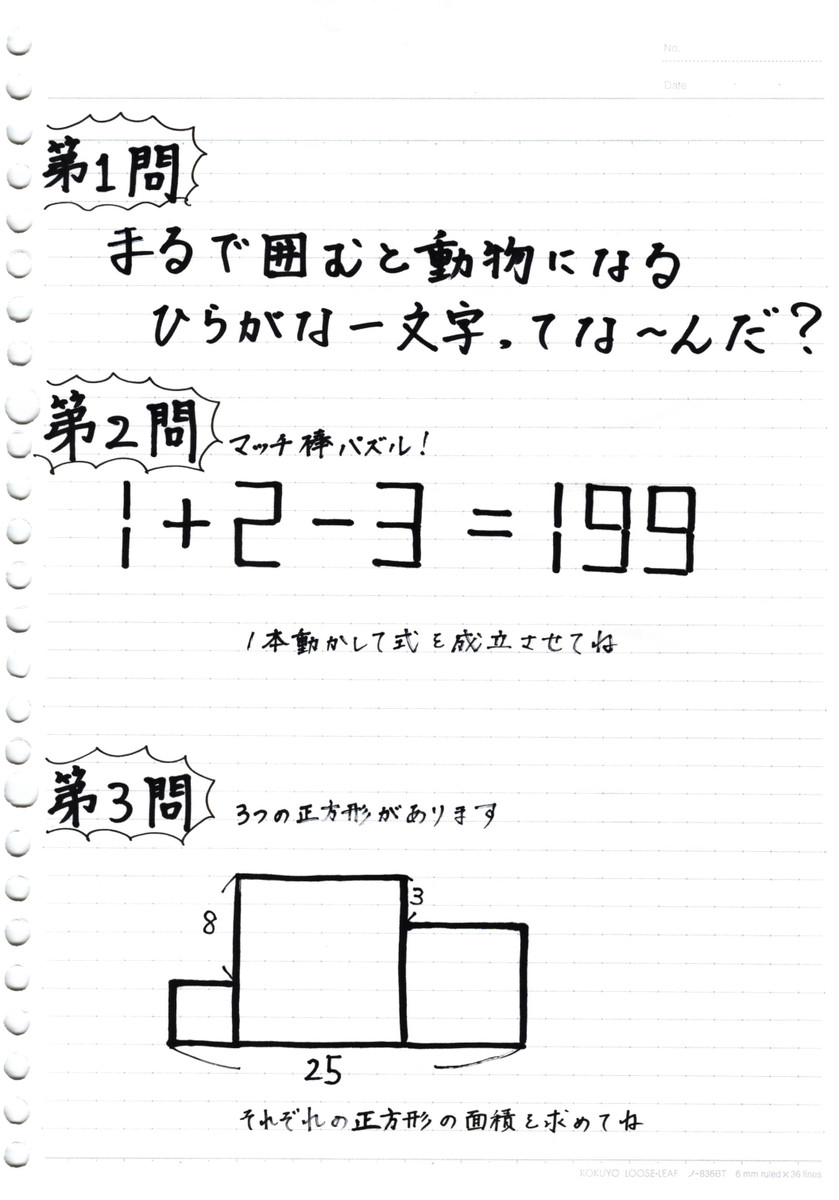 No.
Date
第1問
まるで囲むと動物になる
ひらがな一文字ってな～んだ？
第2問 マッチ棒パズル！
1+2-3=199
1本動かして式を成立させてね
第3問 3つの正方形があります
3
8
25
それぞれの正方形の面積を求めてね
KOKUYO LOOSE-LEAF ノ-836BT 6 mm ruled×36 lines